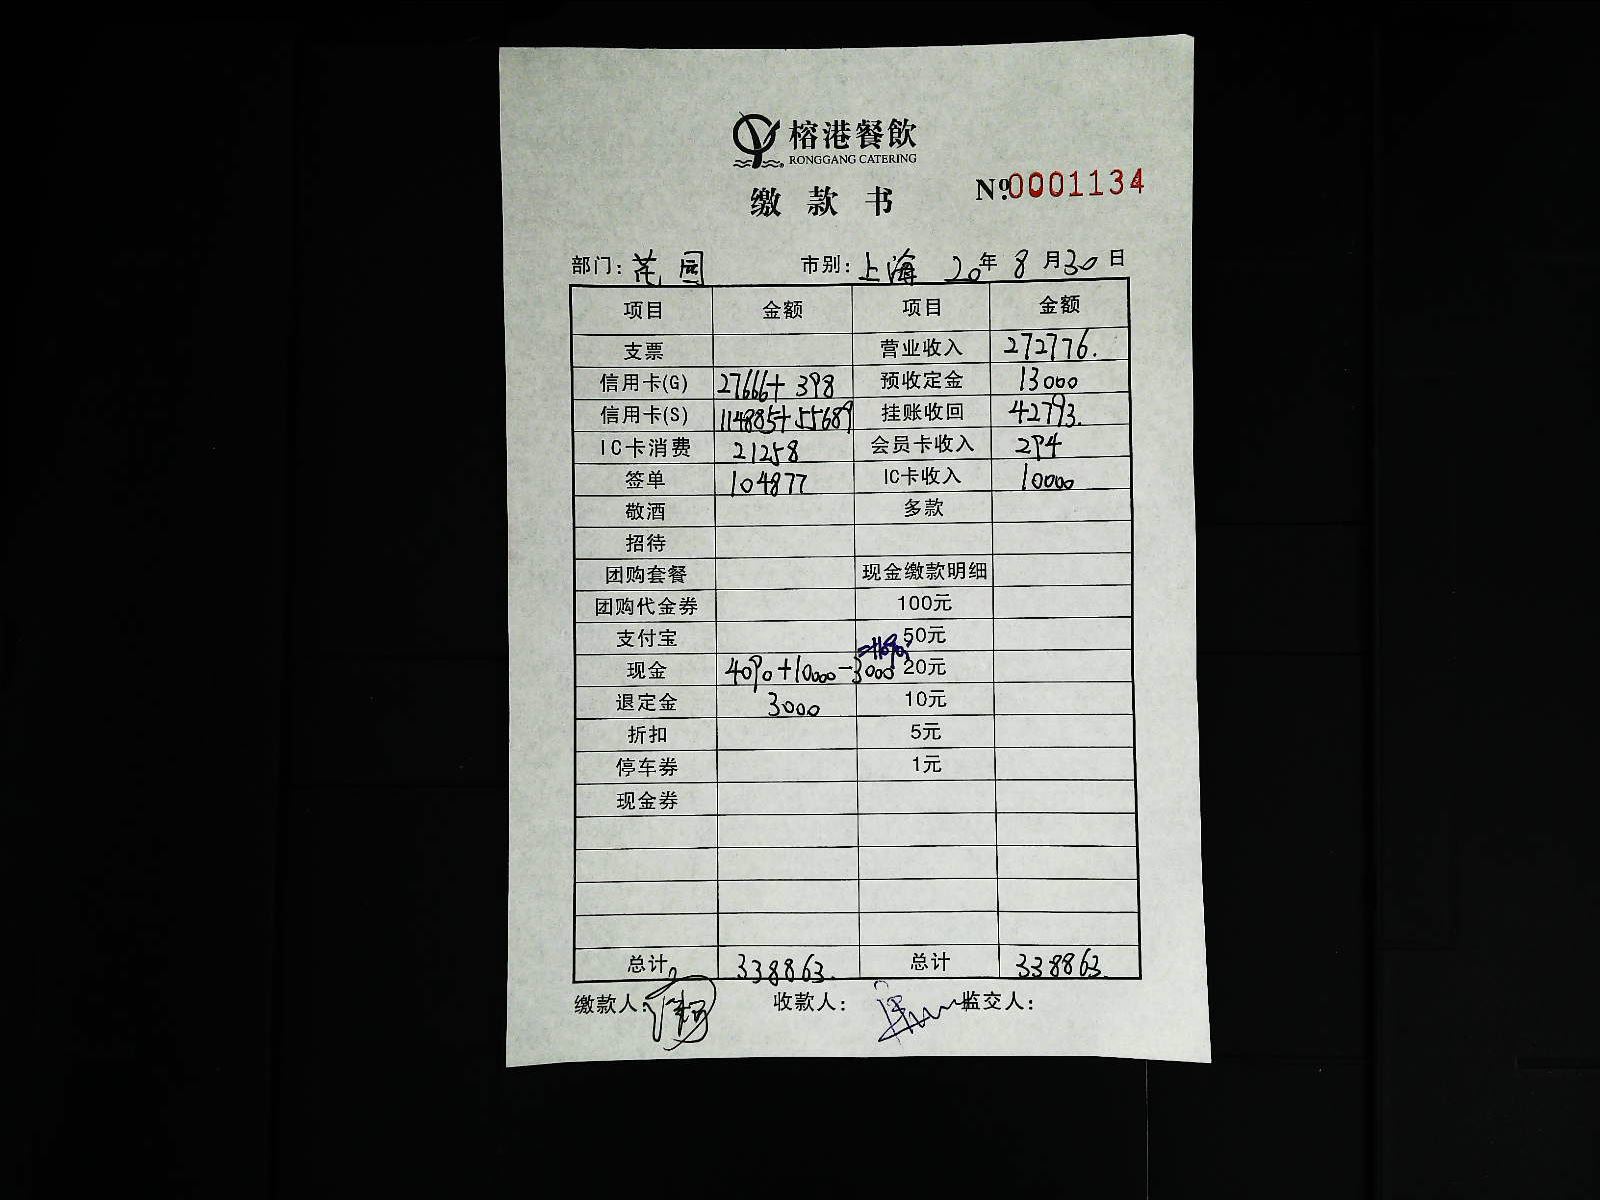 榕港餐飲
RONGGANG CATERING
缴款书 Nº 0001134
部门：花园 市别：上海 20年8月30日
项目 金额 项目 金额
支票 营业收入 272776.
信用卡(G) 27666+398 预收定金 13000
信用卡(S) 114885+55689 挂账收回 42793.
IC卡消费 21258 会员卡收入 294
签单 104877 IC卡收入 10000
敬酒 多款
招待
团购套餐 现金缴款明细
团购代金券 100元
支付宝 50元
现金 4090+10000-3000 20元
退定金 3000 10元
折扣 5元
停车券 1元
现金券
总计 338863. 总计 338863.
缴款人： 收款人： 监交人：